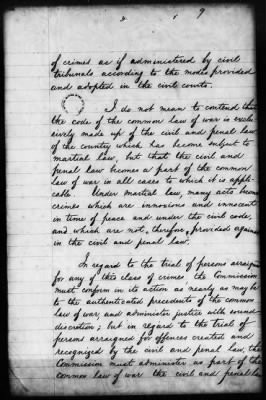 9
of crimes as if administered by civil
tribunals according to the modes provided
and adopted in the civil courts.
I do not mean to contend that
the code of the common law of war is exclu-
sively made up of the civil and penal law
of the country which has become subject to
martial law, but that the civil and
penal law becomes a part of the common
law of war in all cases to which it is appli-
cable. Under martial law, many acts become
crimes which are innoxious and innocent
in time of peace and under the civil code,
and which are not, therefore, provided against
in the civil and penal law.
In regard to the trial of persons arraigned
for any of this class of crimes the Commission
must conform in its action as nearly as may be
to the authenticated precedents of the common
law of war, and administer justice with sound
discretion; but in regard to the trial of
persons arraigned for offences created and
recognized by the civil and penal law, the
Commission must administer as part of the
common law of war the civil and penal law